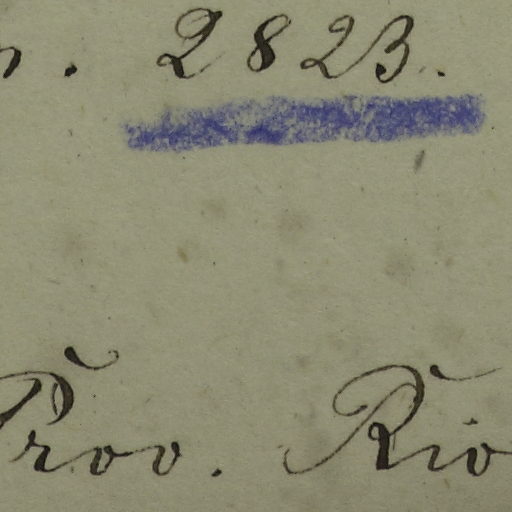 n. 2823.
Prov. Rio